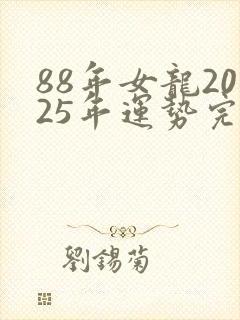 88年女龍20
25年運勢完
劉錫菊